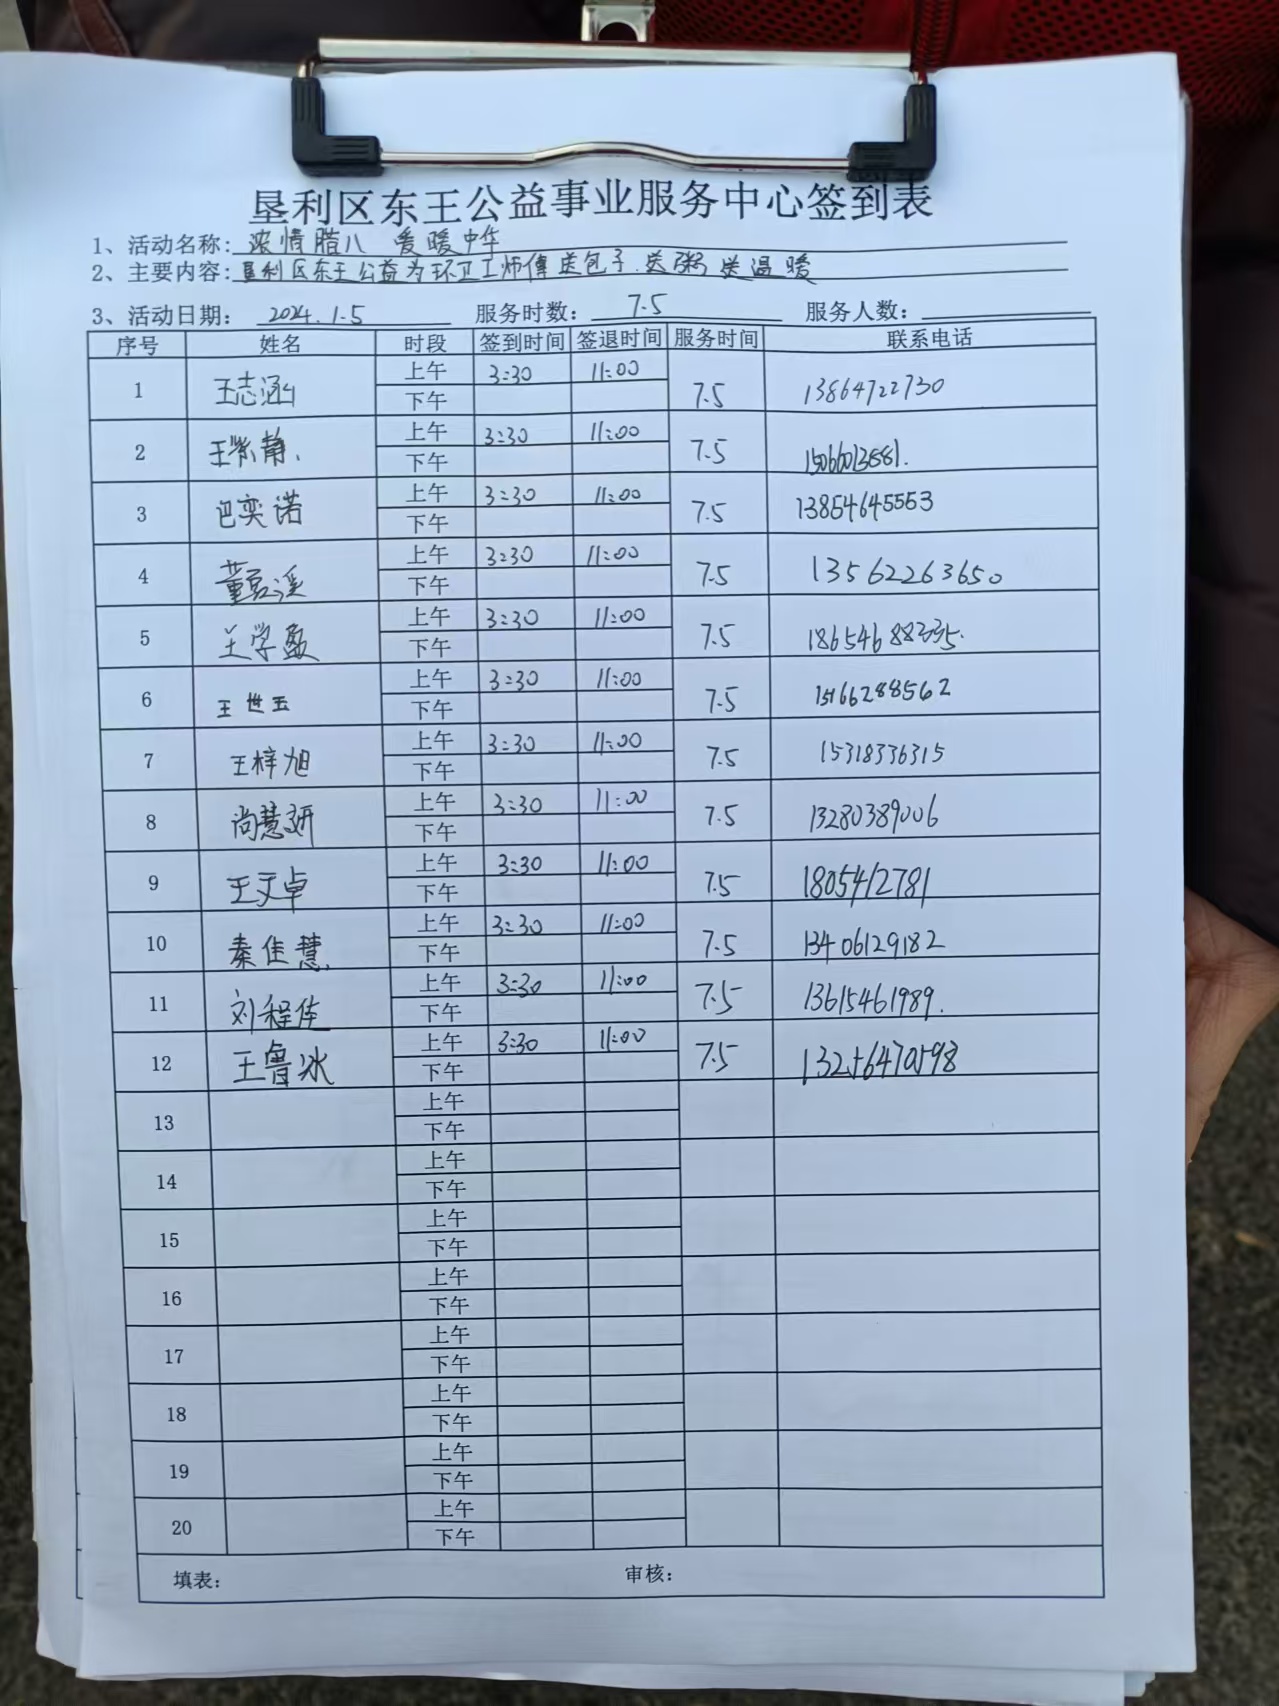 垦利区东王公益事业服务中心签到表
1、活动名称: 浓情腊八 爱暖中华
2、主要内容: 垦利区东王公益为环卫工师傅送包子.送粥送温暖
3、活动日期: 2024.1.5 服务时数: 7.5 服务人数:
序号 姓名 时段 签到时间 签退时间 服务时间 联系电话
1 王志涵 上午 3:30 11:00 7.5 13864722730
下午
2 王紫静 上午 3:30 11:00 7.5
下午
3 巴奕诺 上午 3:30 11:00 7.5 13854645553
下午
4 上午 3:30 11:00 7.5 13562263650
下午
5 王学盈 上午 3:30 11:00 7.5 18654688335.
下午
6 王世玉 上午 3:30 11:00 7.5 15166288562
下午
7 王梓旭 上午 3:30 11:00 7.5 15318336315
下午
8 尚慧妍 上午 3:30 11:00 7.5 13280389006
下午
9 王文卓 上午 3:30 11:00 7.5 1805412781
下午
10 秦佳慧 上午 3:30 11:00 7.5 13406129182
下午
11 刘程佳 上午 3:30 11:00 7.5 13615461989.
下午
12 王鲁冰 上午 3:30 11:00 7.5 13256470598
下午
13 上午
下午
14 上午
下午
15 上午
下午
16 上午
下午
17 上午
下午
18 上午
下午
19 上午
下午
20 上午
下午
填表: 审核: